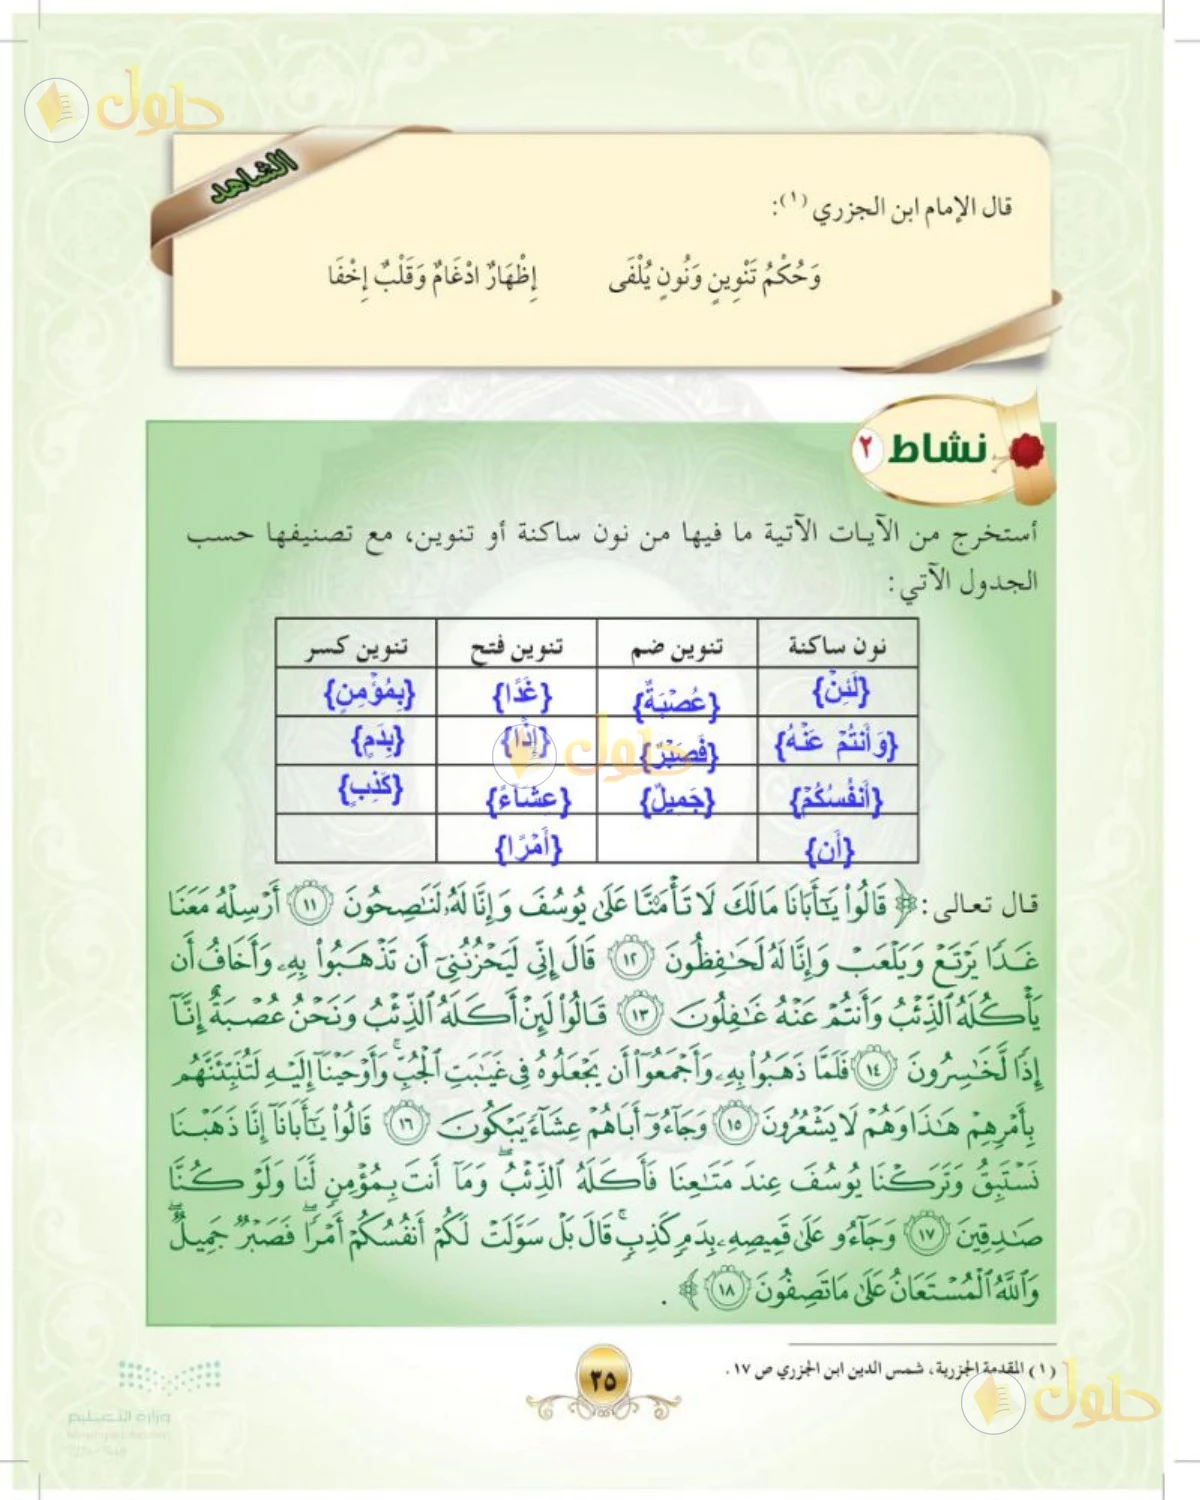 حلول
الشاهد
قال الإمام ابن الجزري (١):
وَحُكْمُ تَنْوِينٍ وَنُونٍ يُلْفَى إِظْهَارٌ ادْغَامٌ وَقَلْبٌ إِخْفَا
نشاط ٢
أستخرج من الآيات الآتية ما فيها من نون ساكنة أو تنوين، مع تصنيفها حسب
الجدول الآتي:
نون ساكنة تنوين ضم تنوين فتح تنوين كسر
{لَئِنْ} {عُصْبَةٌ} {غَدًا} {بِمُؤْمِنٍ}
{وَأَنتُمْ عَنْهُ} {فَصَبْرٌ} {إِذًا} {بِدَمٍ}
{أَنفُسُكُمْ} {جَمِيلٌ} {عِشَآءً} {كَذِبٍ}
{أَن} {أَمْرًا}
حلول
قال تعالى: ﴿ قَالُوا۟ يَـٰٓأَبَانَا مَالَكَ لَا تَأْمَ۫نَّا عَلَىٰ يُوسُفَ وَإِنَّا لَهُۥ لَنَـٰصِحُونَ ١١ أَرْسِلْهُ مَعَنَا
غَدًا يَرْتَعْ وَيَلْعَبْ وَإِنَّا لَهُۥ لَحَـٰفِظُونَ ١٢ قَالَ إِنِّي لَيَحْزُنُنِيٓ أَن تَذْهَبُوا۟ بِهِۦ وَأَخَافُ أَن
يَأْكُلَهُ ٱلذِّئْبُ وَأَنتُمْ عَنْهُ غَـٰفِلُونَ ١٣ قَالُوا۟ لَئِنْ أَكَلَهُ ٱلذِّئْبُ وَنَحْنُ عُصْبَةٌ إِنَّآ
إِذًا لَّخَـٰسِرُونَ ١٤ فَلَمَّا ذَهَبُوا۟ بِهِۦ وَأَجْمَعُوٓا۟ أَن يَجْعَلُوهُ فِى غَيَـٰبَتِ ٱلْجُبِّ ۚ وَأَوْحَيْنَآ إِلَيْهِ لَتُنَبِّئَنَّهُم
بِأَمْرِهِمْ هَـٰذَا وَهُمْ لَا يَشْعُرُونَ ١٥ وَجَآءُوٓ أَبَاهُمْ عِشَآءً يَبْكُونَ ١٦ قَالُوا۟ يَـٰٓأَبَانَآ إِنَّا ذَهَبْنَا
نَسْتَبِقُ وَتَرَكْنَا يُوسُفَ عِندَ مَتَـٰعِنَا فَأَكَلَهُ ٱلذِّئْبُ ۖ وَمَآ أَنتَ بِمُؤْمِنٍ لَّنَا وَلَوْ كُنَّا
صَـٰدِقِينَ ١٧ وَجَآءُو عَلَىٰ قَمِيصِهِۦ بِدَمٍ كَذِبٍ ۚ قَالَ بَلْ سَوَّلَتْ لَكُمْ أَنفُسُكُمْ أَمْرًا ۖ فَصَبْرٌ جَمِيلٌ ۖ
وَٱللَّهُ ٱلْمُسْتَعَانُ عَلَىٰ مَا تَصِفُونَ ١٨ ﴾ .
(١) المقدمة الجزرية، شمس الدين ابن الجزري ص ١٧.
٣٥
حلول
وزارة التعليم
Ministry of Education